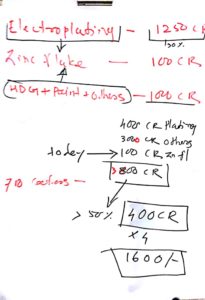 Electroplating — 1250 CR
Zinc flake — 100 CR
HDG + Paint + others — 1000 CR
400 CR Plating
3000 CR others
today → 100 CR Znfl
800 CR
> 50% 400CR
x 4
1600/-